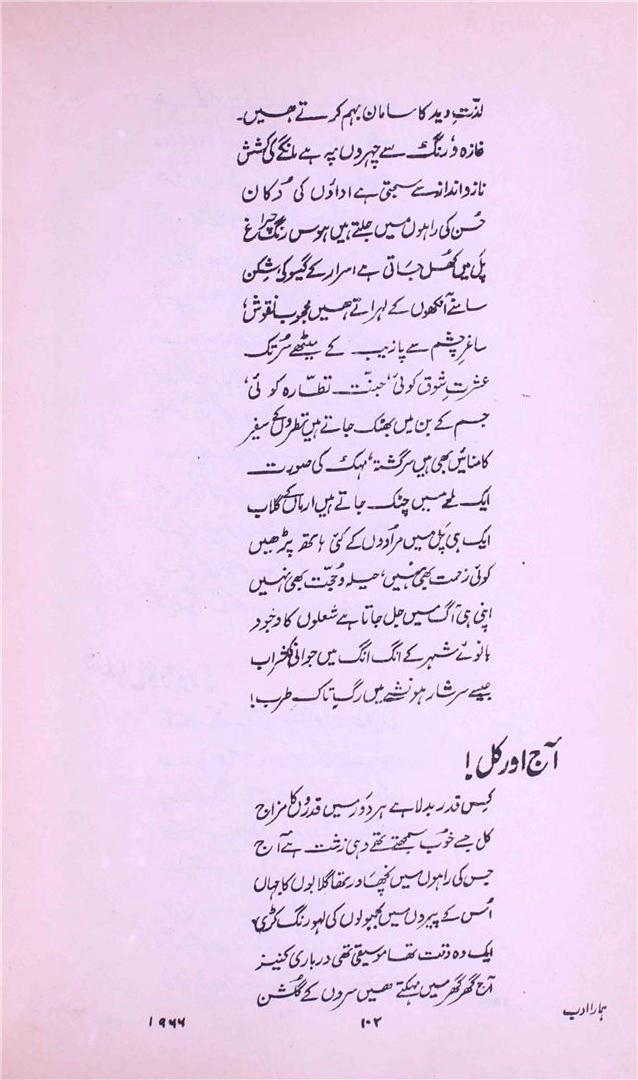 لذّتِ دید کا سامان بہم کرتے ھیں۔
غازہ و رنگ سے چہروں پہ ہے مانگے کی کشش
ناز و انداز سے سجتی ہے اداؤں کی دُکان
حُسن کی راہوں میں جلتے ہیں ہوس رنگ چراغ
پَل میں کھُل جاتی ہے اسرار کے گیسو کی شکن
سامنے آنکھوں کے لہراتے ھیں محجوب نقوش،
ساغرِ چشم سے پازیب کے میٹھے سُر تک
عشرتِ شوق کوئی، جنّتِ نظّارہ کوئی،
جسم کے بن میں بھٹک جاتے ہیں نظروں کے سفیر
کامنائیں بھی ہیں سرگشتہ، مہک کی صورت
ایک لمحے میں چٹک جاتے ہیں ارماں کے گلاب
ایک ہی پَل میں مرادوں کے کئی ہاتھ بڑھیں
کوئی زحمت بھی نہیں، حیلہ و حجّت بھی نہیں
اپنی ہی آگ میں جل جاتا ہے شعلوں کا وجود
بانوئے شہر کے انگ انگ میں جوانی کی شراب
جیسے سرشار ہو نشے میں رگِ تاکِ طرب!
آج اور کل!
کِس قدر بدلا ہے ہر دَور میں قدروں کا مزاج
کل جسے خُوب سمجھتے تھے وہی زشت ہے آج
جس کی راہوں میں نچھاور تھا گلابوں کا جہاں
اُس کے پیروں میں ببولوں کی لہو رنگ کڑی
ایک وہ وقت تھا موسیقی تھی درباری کنیز
آج گھر گھر میں مہکتے ھیں سروں کے گُلشن
ہمارا ادب
۱۰۲
۱۹۶۶